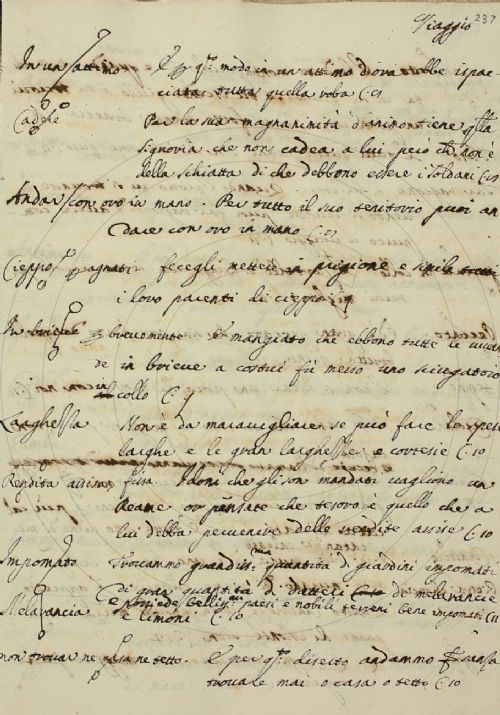 Viaggio 237
In un attimo E p qsto modo in un attimo diovarebbe ispac
ciata tutta quella roba C. 21
Cadere Per la sua magnanimità d'animo tiene qlla
signoria che non cadea a lui però ch non è
della schiatta di che debbono essere i Soldani C. 29
Andar con ovo in mano. Per tutto il suo territorio puoi an
dare con ovo in mano C.
Cieppo, p agnati fecegli mettere in prigione e simile tutti
i loro parenti di cieppo
In brieve p brevemente E mangiato che ebbono tutte le vivan
de in brieve a costui fù messo uno sciugatoio
in collo C. 9
Larghessa Non è da maravigliare se può fare le spese
larghe e le gran larghesse e cortesie C. 10
Rendita assisa fissa I doni che gli son mandati vagliono un
Reame or pensate che tesoro è quello che a
lui debba pervenire delle rendite assise C. 10
Impomato Trovammo grandissma quantità di giardini impomati
di gran quantità di datteli C. 10 di melarance
e possiede belliss.mi paesi e nobili terreni bene impomati C. 11
Melarancia e limoni C. 10
non trovar ne casa ne tetto. E per qsto diserto andammo sansa
trovare mai o casa o tetto C. 10